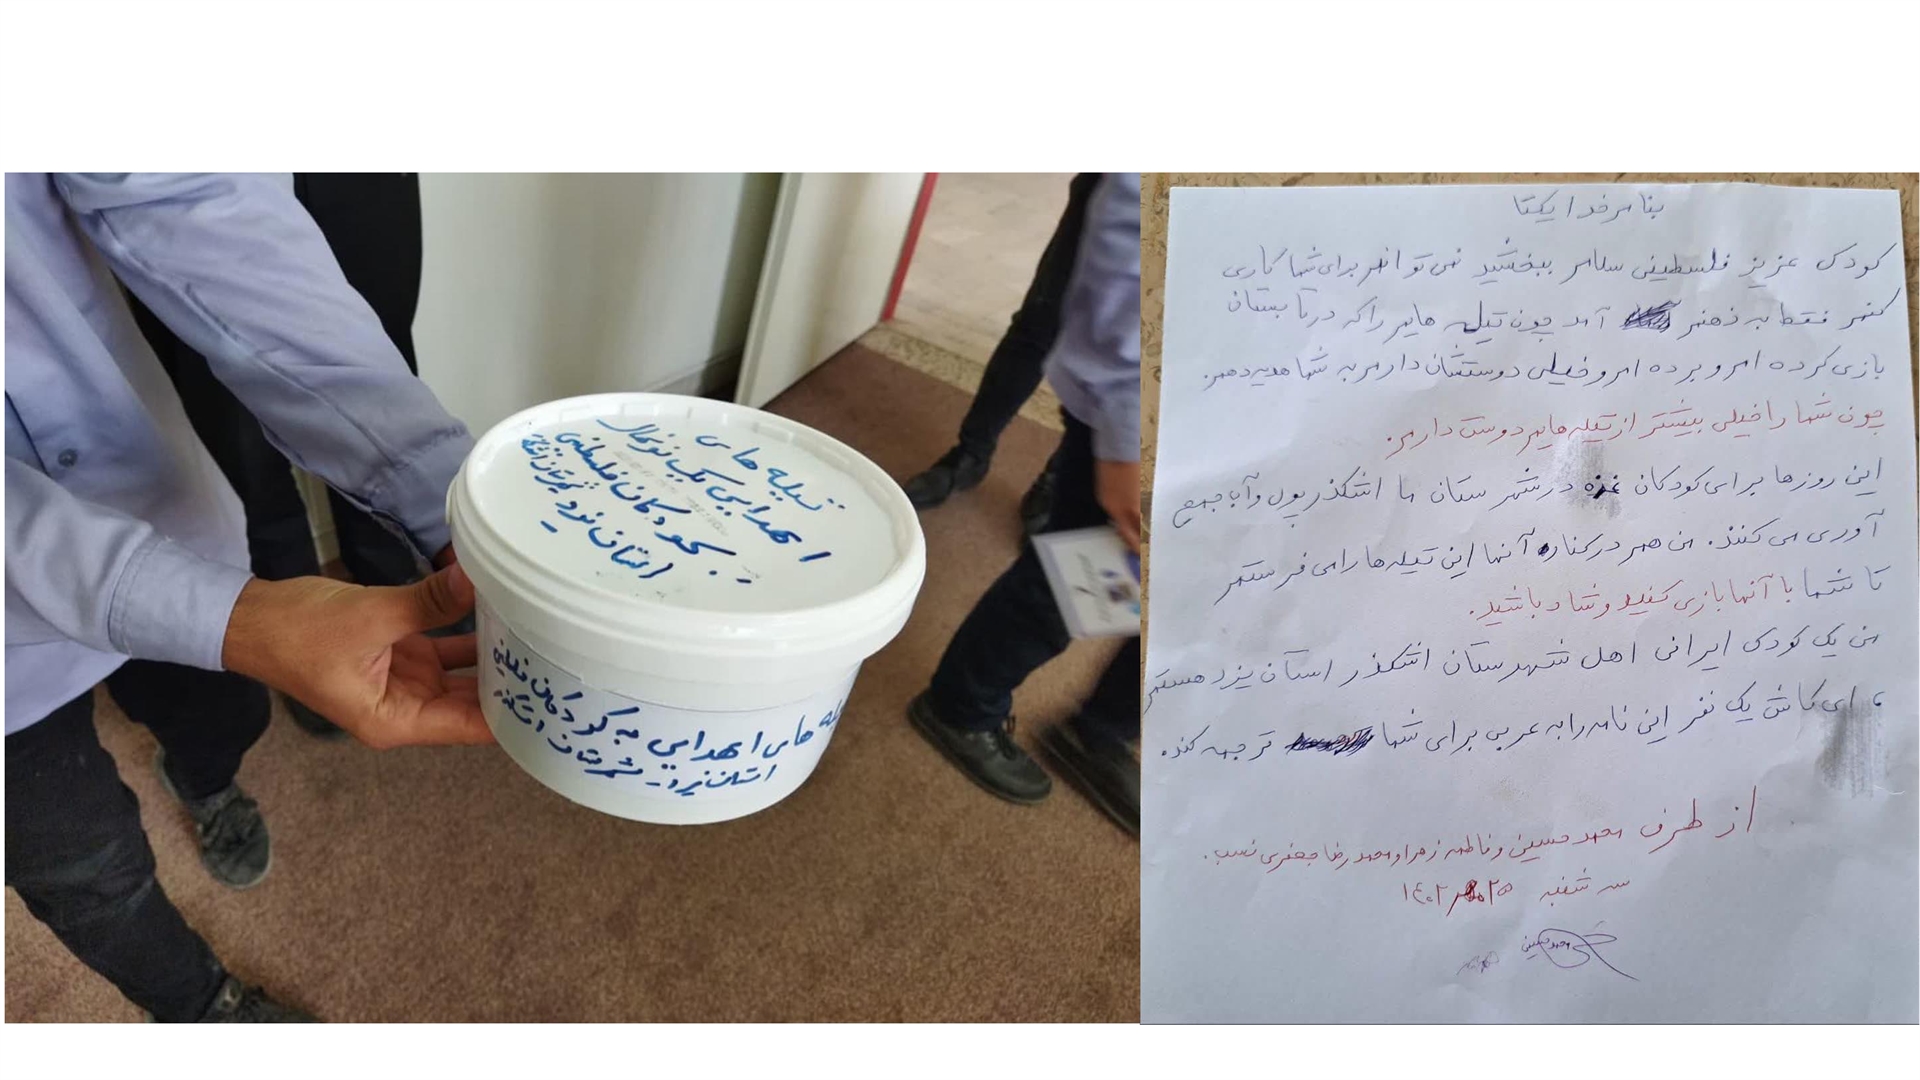 تیله های
اهدایی یک نونهال
بکودکان فلسطینی
استان یزد شهرستان اشکذر
تیله های اهدایی به کودکان فلسطینی
استان یزد شهرستان اشکذر
بنام خدا یکتا
کودک عزیز فلسطینی سلام ببخشید نمی توانم برای شما کاری
کنم فقط به ذهنم آمد چون تیله هایم را که در تابستان
بازی کرده ام و برده ام و خیلی دوستشان دارم به شما هدیه دهم.
چون شما را خیلی بیشتر از تیله هایم دوست دارم.
این روزها برای کودکان غزه در شهرستان ما اشکذر پول و آب جمع
آوری می کنند. من هم در کنار آنها این تیله ها را می فرستم
تا شما با آنها بازی کنید و شاد باشید.
من یک کودک ایرانی اهل شهرستان اشکذر استان یزد هستم
، ای کاش یک نفر این نامه را به عربی برای شما ترجمه کند.
از طرف محمدحسین و فاطمه زهرا و محمدرضا جعفری نسب.
سه شنبه ۲۵ مهر ۱۴۰۲
محمدحسین